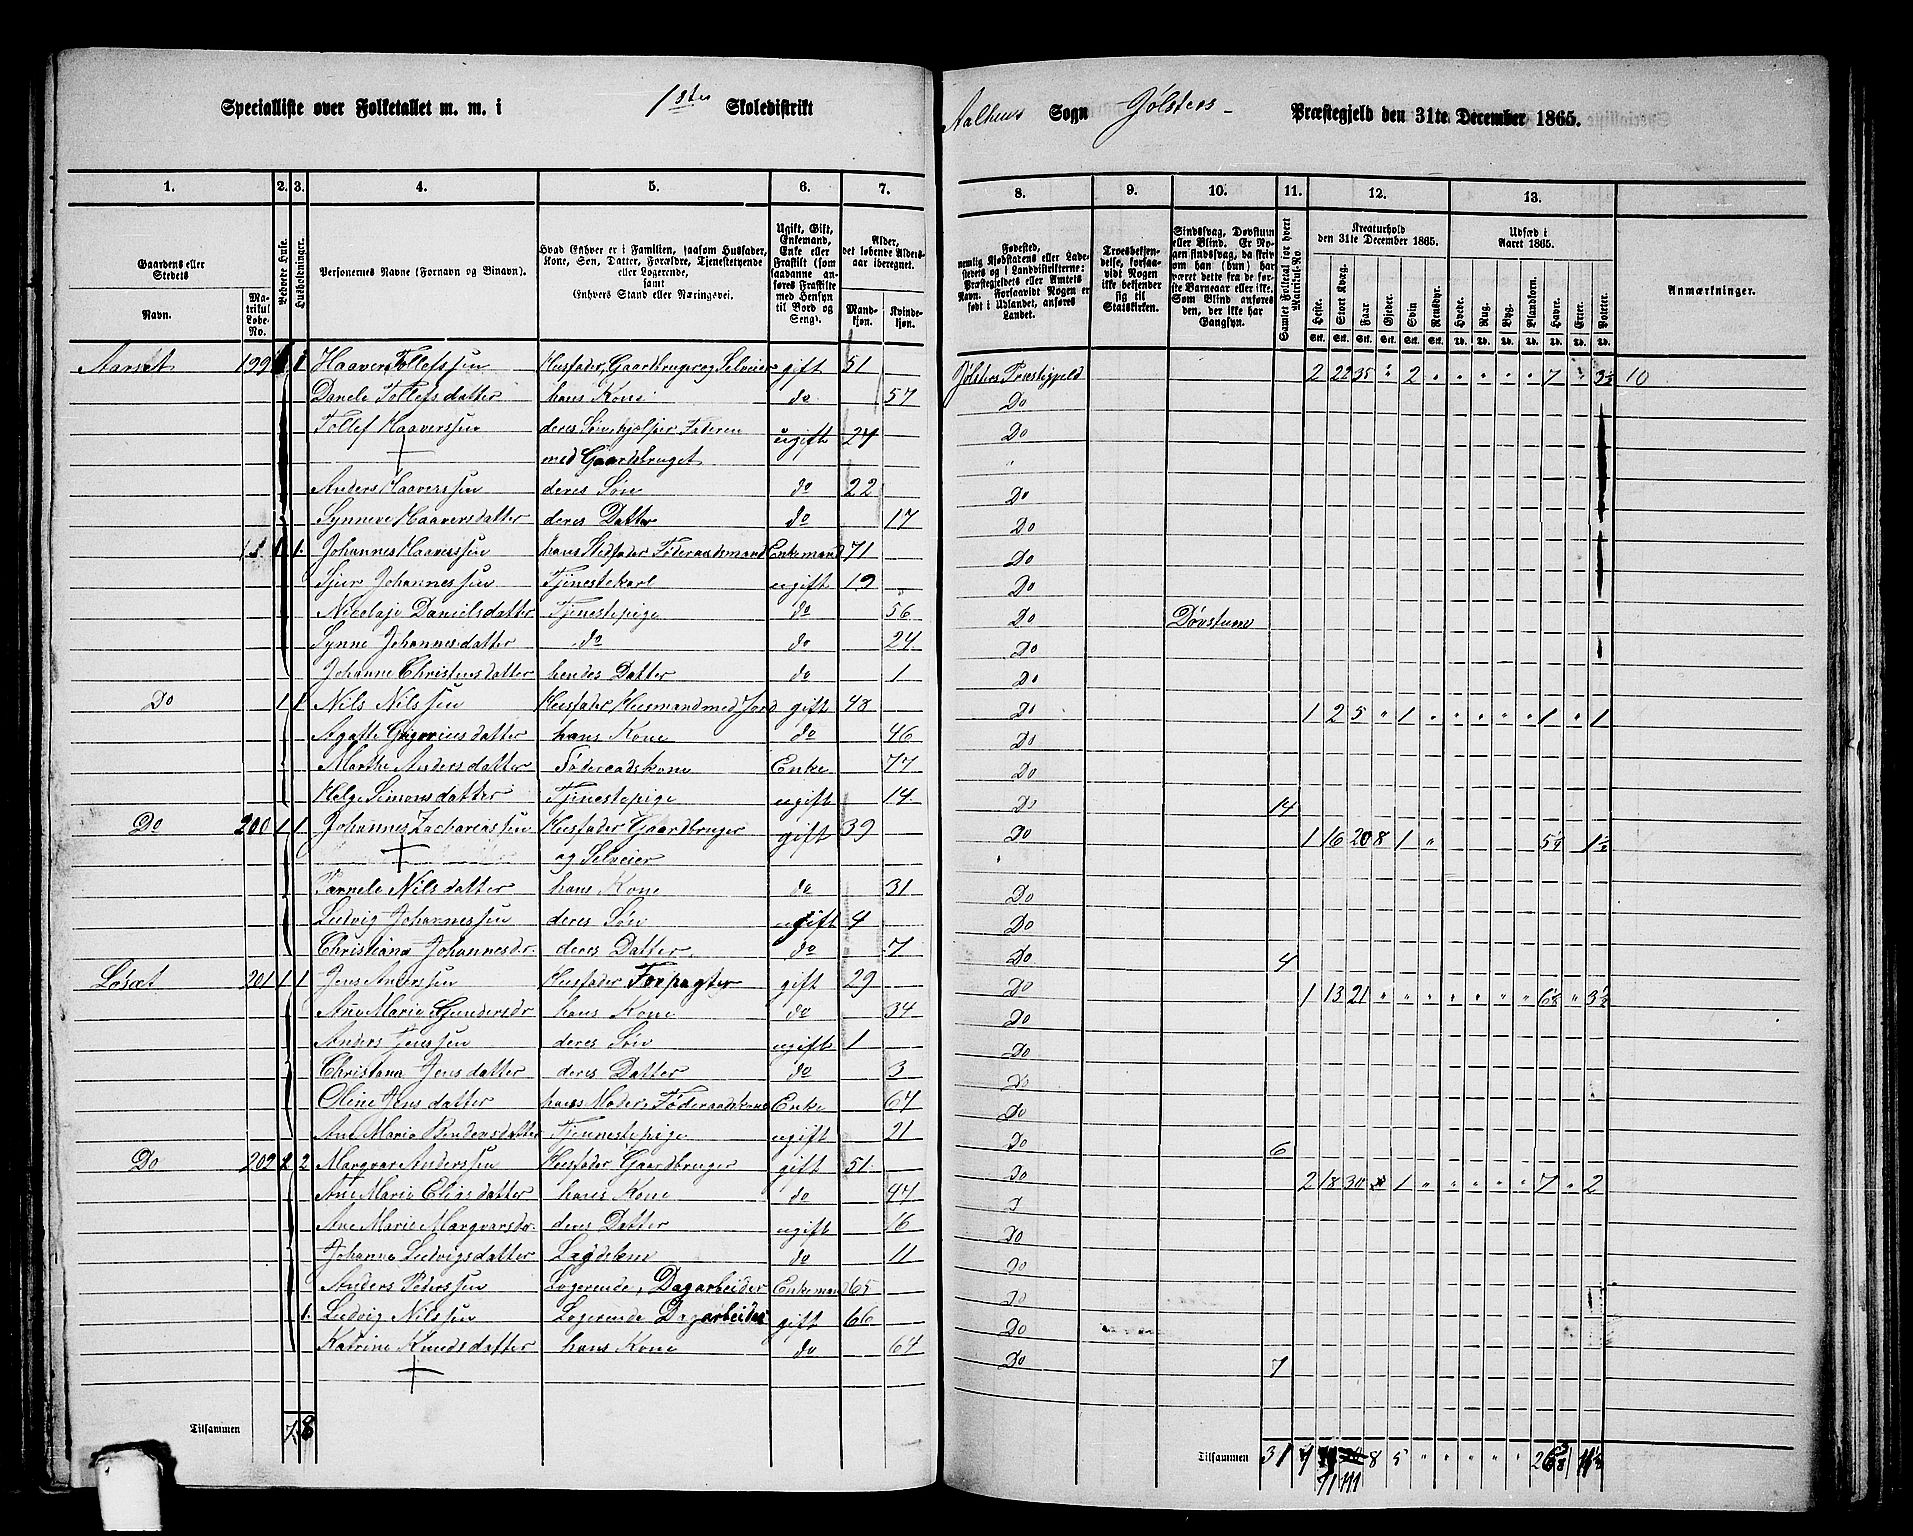 Specialliste over Folketallet m. m. i 1ste Skoledistrikt Aalhus Sogn Jølsters Præstegjeld den 31te December 1865.
1. 2. 3. 4. 5. 6. 7. 8. 9. 10. 11. 12. 13.
Gaardens eller Stedets
Navn.
Matrikul Løbe-No.
Beboede Huse.
Husholdninger.
Personernes Navne (Fornavn og Binavn).
Hvad Enhver er i Familien, saasom Husfader, Kone, Søn, Datter, Forældre, Tjenestetyende eller Logerende, samt Enhvers Stand eller Næringsvei.
Ugift, Gift, Enkemand, Enke eller Fraskilt
Alder, det løbende Aldersaar iberegnet.
Mandkjøn. Kvindekjøn.
Fødested,
Troesbekjendelse, forsaavidt Nogen ikke bekjender sig til Statskirken.
Sindssvag, Døvstum eller Blind.
Samlet Folketal for hvert Matrikul-No.
Kreaturhold den 31te December 1865.
Udsæd i Aaret 1865.
Heste. Stort Kvæg. Faar. Gjeder. Svin. Rensdyr. Hvede. Rug. Byg. Blandkorn. Havre. Erter. Poteter.
Anmærkninger.
Aarset 199 1 1 Haaver Tollefssen Husfader, Gaardbruger og Selveier gift 51 Jølsters Præstegjeld 2 22 35 " 2 " " " " " 7 " 3½ 10
Danele Tollefsdatter hans Kone do 57 Do
Tollef Haaverssen deres Søn hjelper Faderen ugift 24 Do
med Gaardsbruget "
Anders Haaverssen deres Søn do 22 Do
Synneve Haaversdatter deres Datter do 17 Do
1 1. Johannes Haaverssen hans Stedfader Føderaadsmand Enkemand 71 Do
Sjur Johannessen Tjenestekarl ugift 19 Do
Nicolaje Danielsdatter Tjenestepige do 56 Do Døvstum
Synne Johannesdatter do do 24 Do
Johanne Christensdatter hendes Datter do 1 Do
Do 1 1 Nils Nilssen Husfader, Husmand med Jord gift 48 Do 1 2 5 " 1 " " " " " 1 " 1
Agatte Gregoriusdatter hans Kone do 46 Do
Marthe Andersdatter Føderaadskone Enke 77 Do
Helge Simonsdatter Tjenestepige ugift 14. Do 14
Do 200 1 1 Johannes Zachariassen Husfader Gaardbruger gift 39 Do 1 16 20 8 1 " 5¼ 1½
og Selveier "
Pernele Nilsdatter hans Kone do 31 Do
Ludvig Johannessen deres Søn ugift 4 Do
Christiana Johannesdr. deres Datter do 7 Do 4
Løsæt 201 1 1 Jens Anderssen Husfader Forpagter gift 29 Do 1 13 21 " " " " " " " 6⅛ " 3½
Ane Marie Gundersdr. hans Kone do 34 Do
Anders Jenssen deres Søn ugift 1 Do
Christana Jensdatter deres Datter do 3 Do
Oline Jensdatter hans Moder, Føderaadskone Enke 64 Do
Ane Marie Bendersdatter Tjennestepige ugift 21 Do 6
Do 202 2 2 Margvar Anderssen Husfader Gaardbruger gift 51. Do 2 18 30 1 " " " " " 7 " 2
Ane Marie Eliasdatter hans Kone do 44 D
Ane Marie Margvarsdr. deres Datter ugift 16 Do
Johanne Ludvigsdatter Lægdslem do 11 Do
Anders Pederssen Logerende, Dagarbeider Enkemand 65 Do
1. Ludvig Nilssen Logerende Dagarbeider gift 66 Do
Katrine Knudsdatter hans Kone do 64 Do 7
Tilsammen 7. 8 Tilsammen 31 7 8 5 " " " " "
71 111